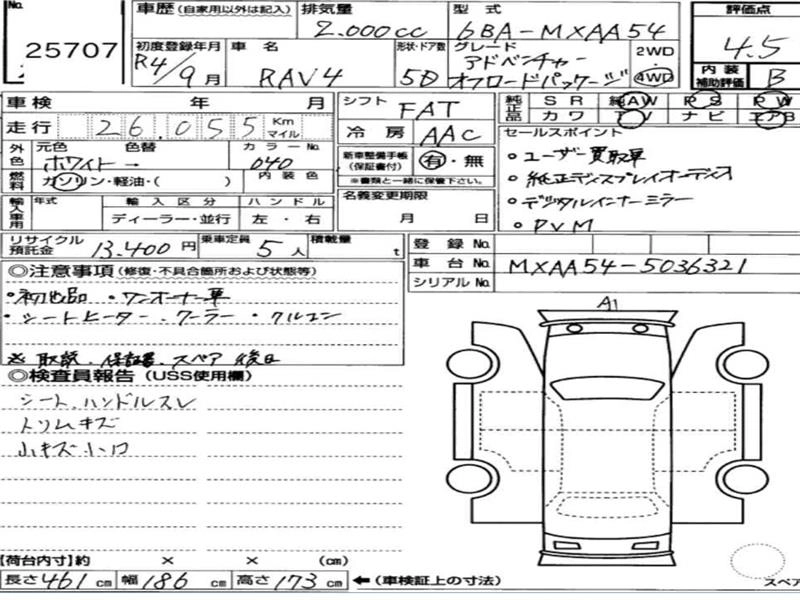 No.
25707
車歴 (自家用以外は記入) 排気量 2.000cc 型式 6BA-MXAA54 評価点 4.5
初度登録年月 R4/9月 車名 RAV4 形状・ドア数 5D グレード アドベンチャー オフロードパッケージ 2WD・4WD 内装補助評価 B
車検 年 月 シフト FAT 純正品 SR 純AW PS PW
走行 26.055 Km マイル 冷房 AAC カワ TV ナビ エアB
外色 元色 ホワイト→ 色替 カラーNo. 040 新車整備手帳(保証書付) 有・無 ※書類と一緒に保管下さい。
燃料 ガソリン・軽油・( ) 内装色 名義変更期限 月 日
輸入車用 年式 輸入区分 ディーラー・並行 ハンドル 左・右
リサイクル預託金 13.400円 乗車定員 5人 積載量 t
セールスポイント
○ユーザー買取車
○純正ディスプレイオーディオ
○デジタルインナーミラー
○PVM
登録No.
車台No. MXAA54-5036321
シリアルNo.
◎注意事項(修復・不具合箇所および状態等)
・初出品 ・ワンオーナー車
・シートヒーター・クーラー・クルコン
※取説、保証書、スペア 後日
◎検査員報告(USS使用欄)
シート、ハンドルスレ
トリムキズ
小キズ小凹
A1
【荷台内寸】約 × × (cm)
長さ461cm 幅186cm 高さ173cm ←(車検証上の寸法)
スペア